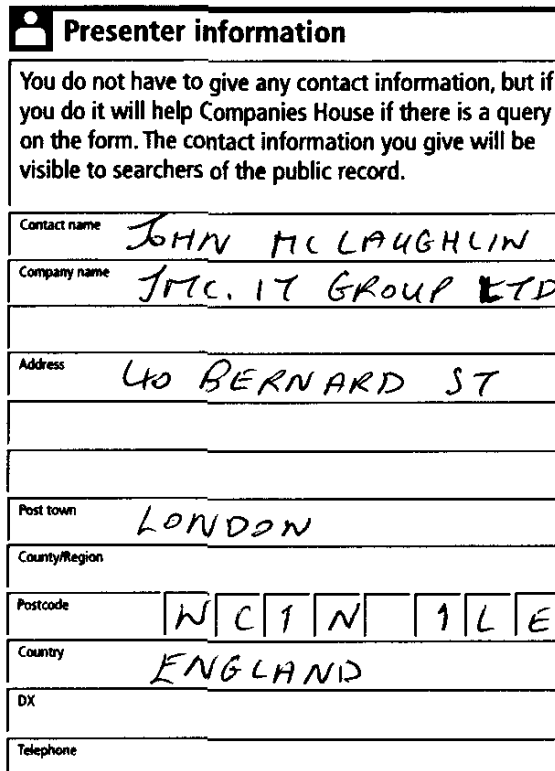 Presenter information
You do not have to give any contact information, but if
you do it will help Companies House if there is a query
on the form. The contact information you give will be
visible to searchers of the public record.
Contact name JOHN MCLAUGHLIN
Company name JMC. IT GROUP LTD
Address 40 BERNARD ST
Post town LONDON
County/Region
Postcode WC1N 1LE
Country ENGLAND
DX
Telephone